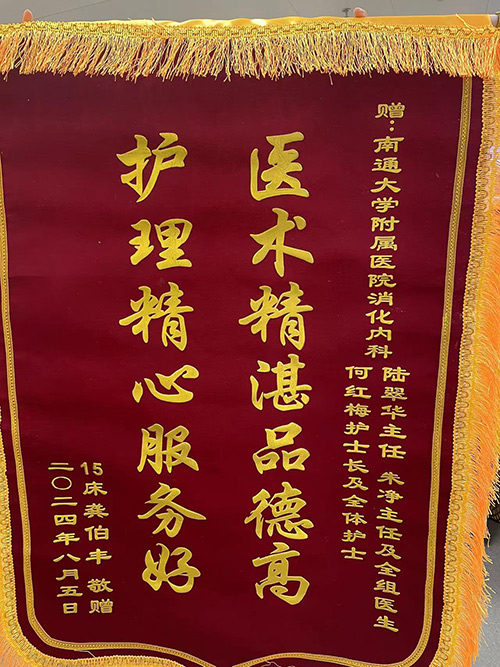 赠:南通大学附属医院消化内科
陆翠华主任 朱净主任及全组医生
何红梅护士长及全体护士
医术精湛品德高
护理精心服务好
15床龚伯丰 敬赠
二〇二四年八月五日